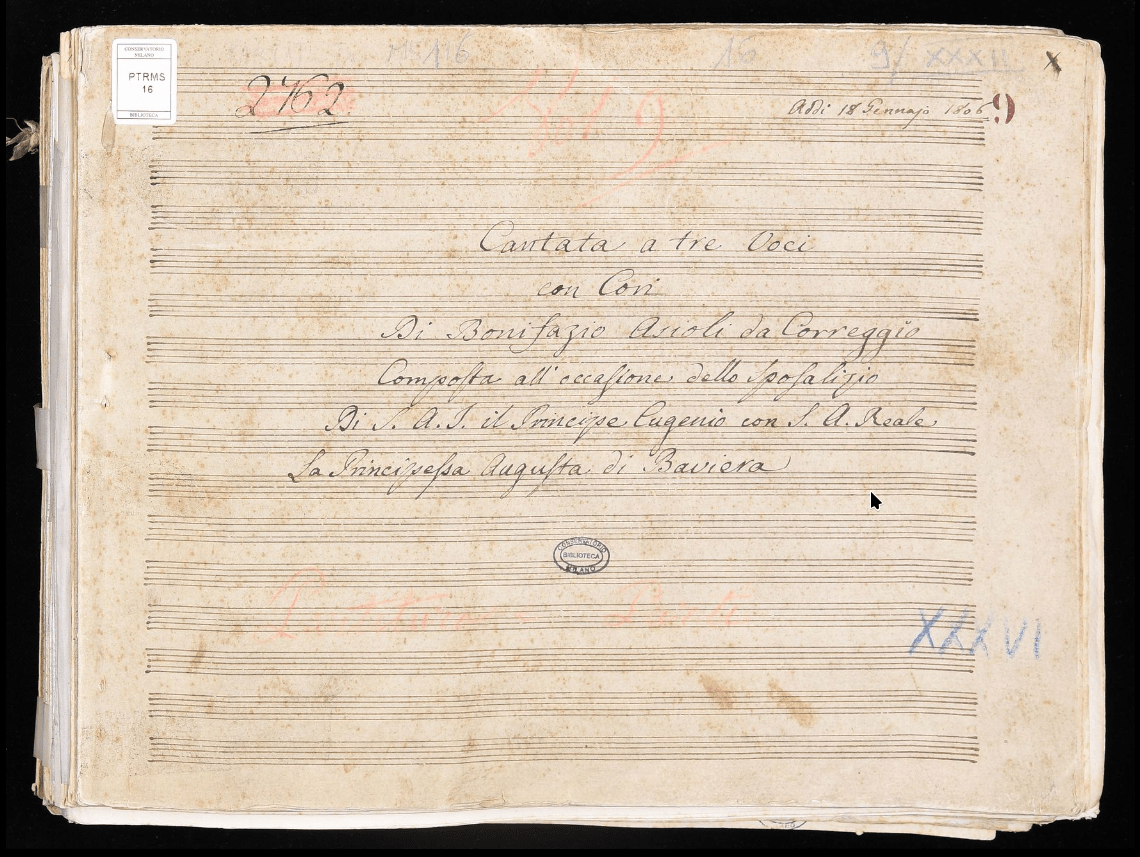 CONSERVATORIO
MILANO
PTRMS
16
BIBLIOTECA
MS 16
16
9/ XXXII
X
262
Addi 18 Gennajo 1806
9
Cantata a tre Voci
con Cori
Di Bonifazio Asioli da Correggio
Composta all' occasione dello Sposalizio
Di S. A. I. il Principe Eugenio con S. A. Reale
La Principessa Augusta di Baviera
CONSERVATORIO
BIBLIOTECA
MILANO
Partitura e Parti
XXXVI